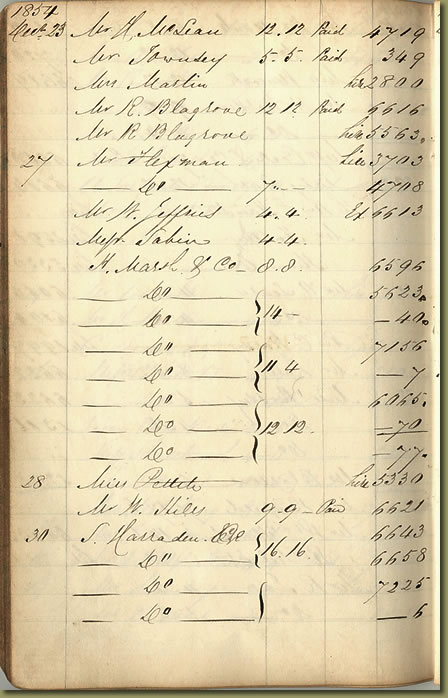 1854
Decr. 23 Mr H. McLean 12.12 Paid 4719
Mr Townsey 5.5. Paid 349
Mrs Martin hire 2800
Mr R. Blagrove 12 12 Paid 6616
Mr R Blagrove hire 5563.
27 Mr Hexman hire 3703
Do 7 -- 4708
Mr W. Jeffries 4.4. Ex 6613
Messrs Sabin 4.4.
H. Marsh & Co 8.8. 6596
Do 5623.
Do 14 - — 40.
Do 7156
Do 11 4 — 7
Do 6065.
Do 12 12. — 70
Do — 77.
28 Miss Pettit hire 5330
Mr W. Hiles 9.9 - Paid 6621
30 S. Harraden. Esq 6643
Do 16.16. 6658
Do 7225
Do — 6